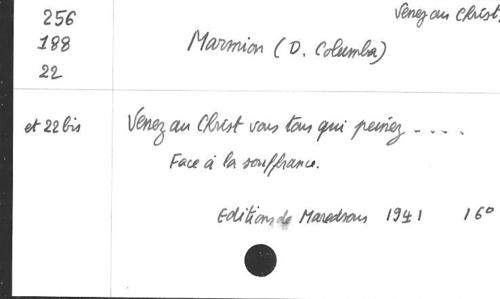 Venez au Christ.
256
188
22
Marmion (D. Columba)
et 22 bis
Venez au Christ vous tous qui peinez ....
Face à la souffrance.
Editions de Maredsous 1941 16°